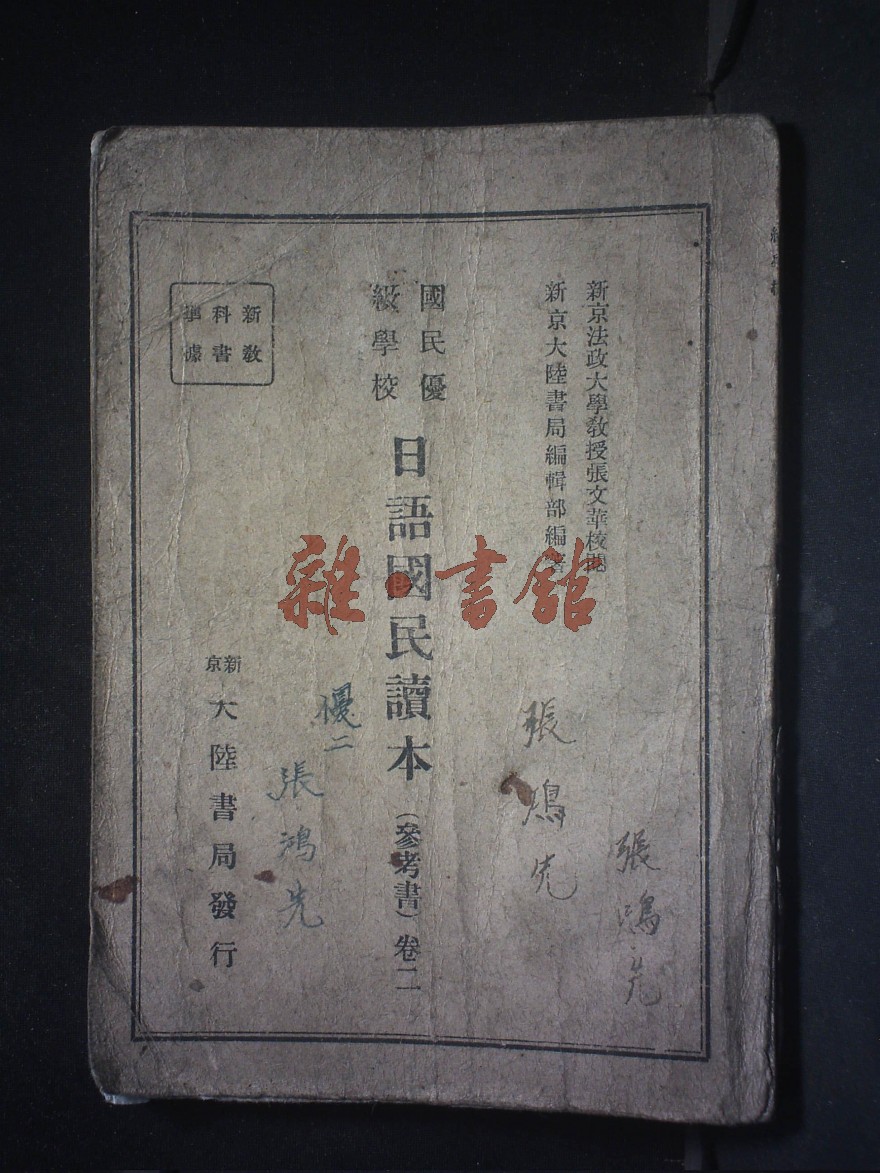 新京法政大學教授張文華校閱
新京大陸書局編輯部編著
國民優
級學校
日語國民讀本(參考書)卷二
新教
科書
準據
新京
大陸書局發行
優二
張鴻先
張鴻先
張鴻先
雜·書館